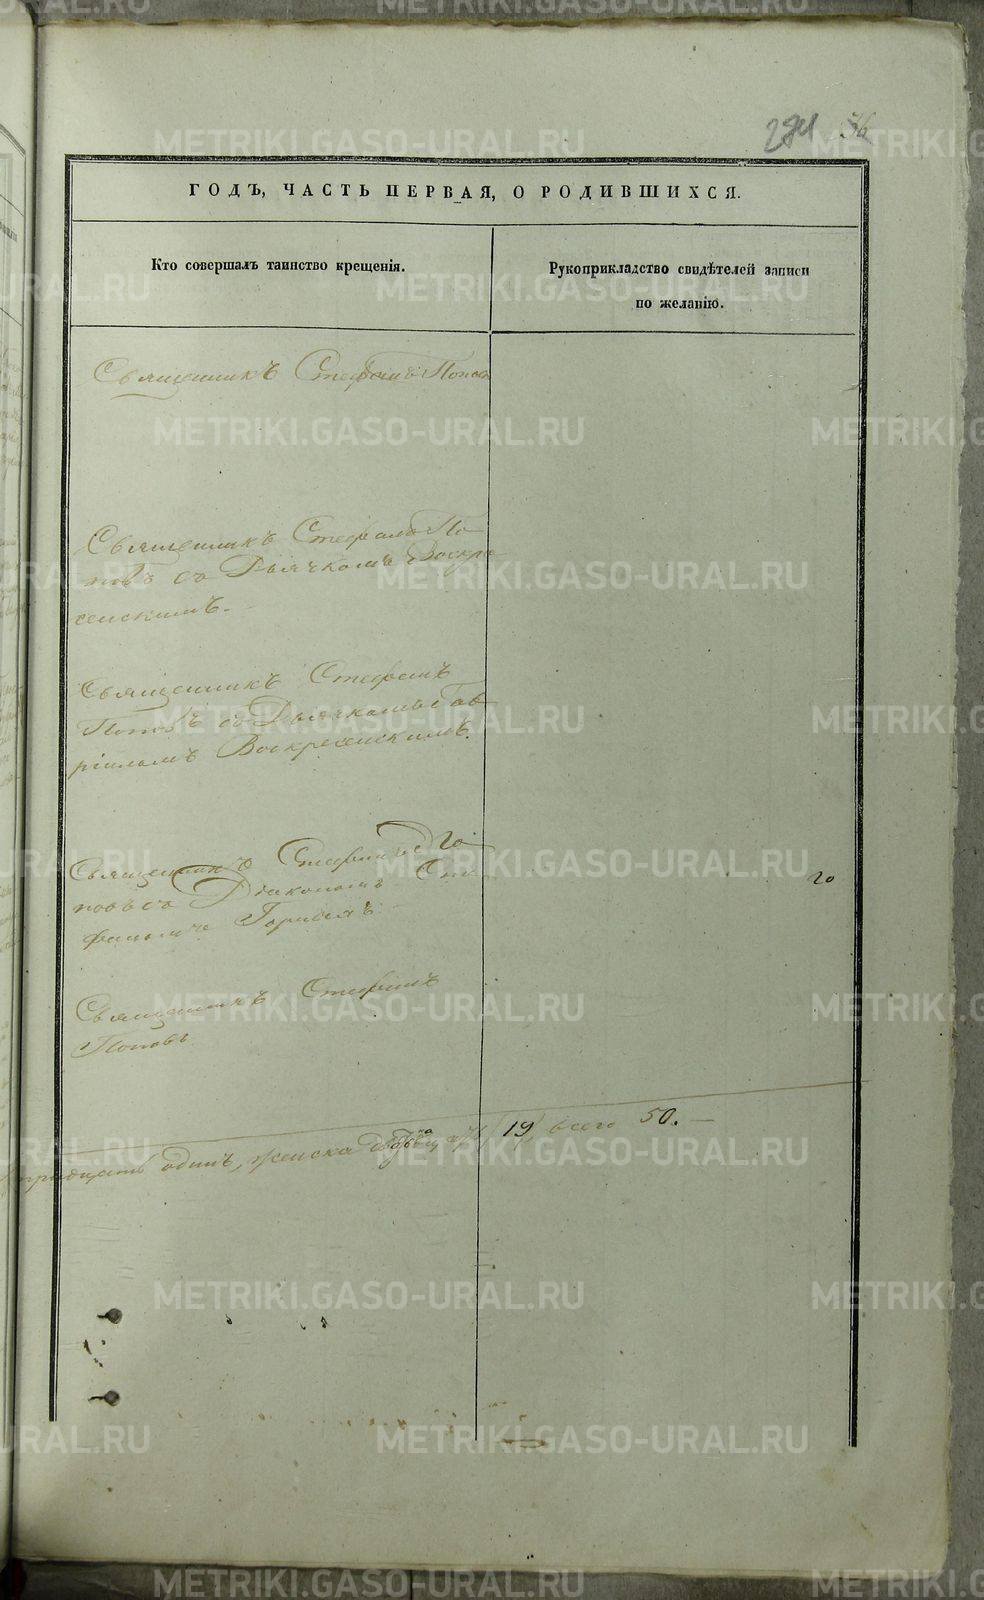 291 56
ГОДЪ, ЧАСТЬ ПЕРВАЯ, О РОДИВШИХСЯ.
Кто совершалъ таинство крещенія.
Рукоприкладство свидѣтелей записи
по желанію.
Священникъ Стефанъ Поповъ
Священникъ Стефанъ По
повъ съ Дьячкомъ Воскре
сенскимъ.
Священникъ Стефанъ
Поповъ съ Дьячкомъ Гав
ріиломъ Воскресенскимъ.
Священникъ Стефанъ По
повъ съ Діакономъ
Священникъ Стефанъ
Поповъ
тридцать одинъ, женска 19, всего 50.
METRIKI.GASO-URAL.RU